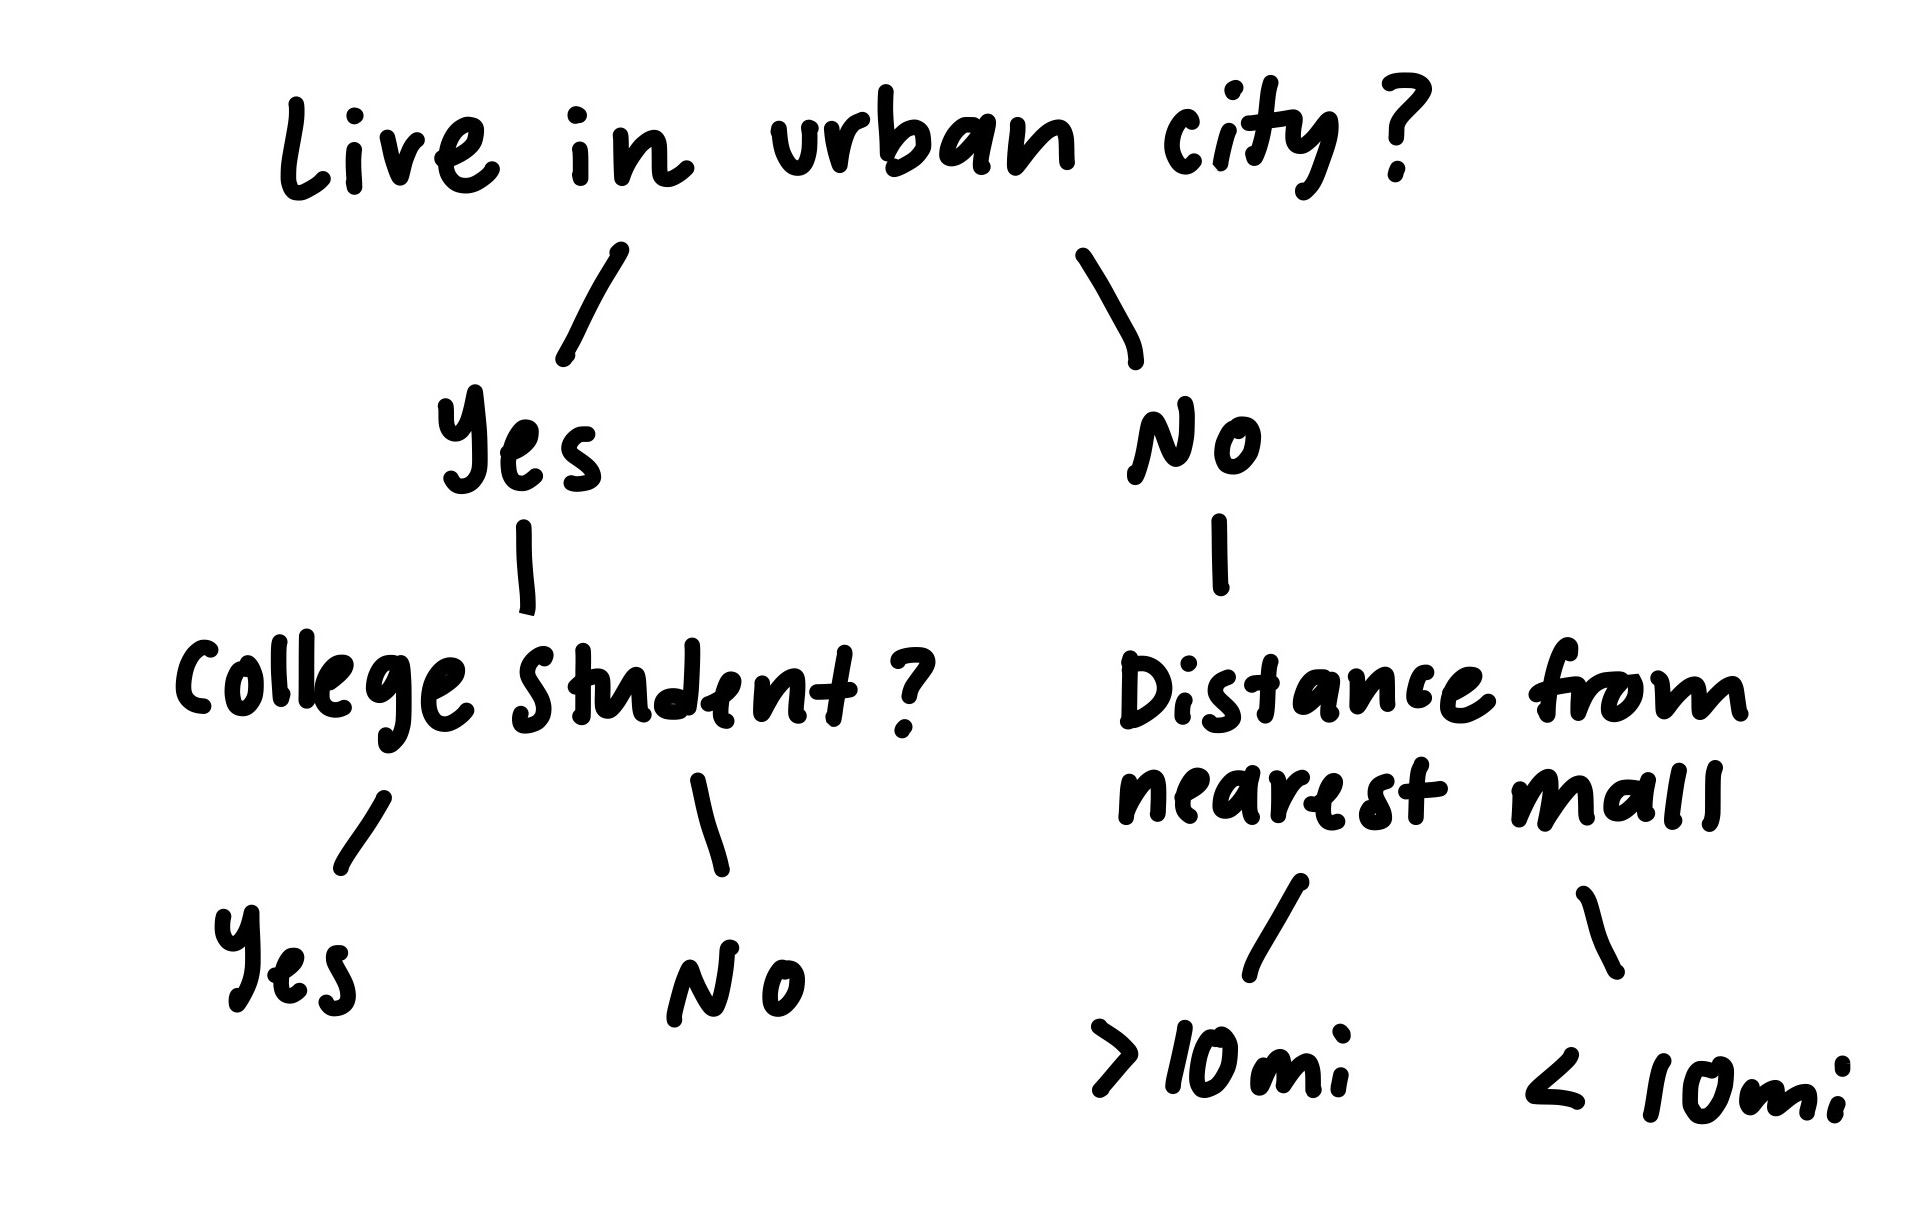 Live in urban city?
Yes
No
College Student?
Distance from
nearest mall
Yes
No
>10mi
< 10mi